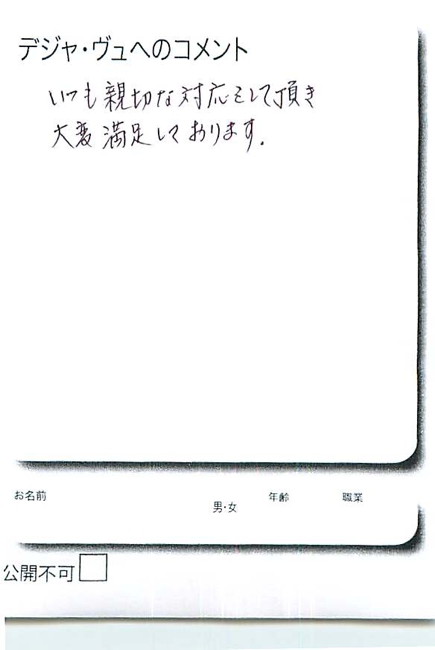 デジャ・ヴュへのコメント
いつも親切な対応をして頂き
大変満足しております.
お名前
男・女
年齢
職業
公開不可